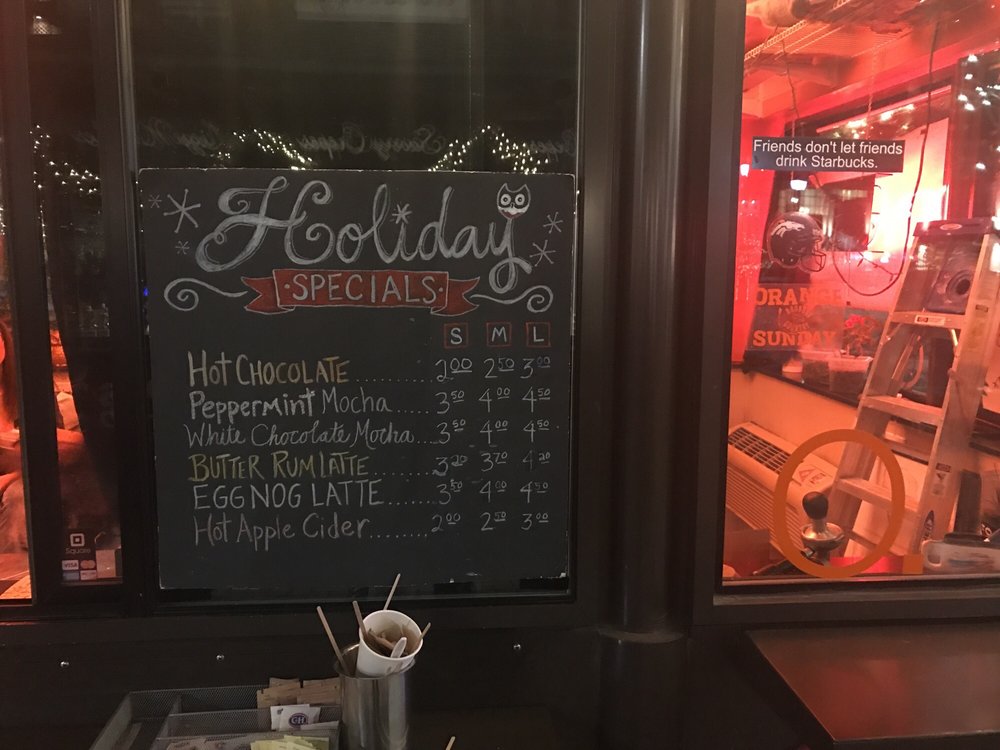 Holiday
· SPECIALS ·
S M L
HOT CHOCOLATE .......... 2.00 2.50 3.00
Peppermint Mocha ..... 3.50 4.00 4.50
White Chocolate Mocha ... 3.50 4.00 4.50
BUTTER RUM LATTE ........ 3.20 3.70 4.20
EGG NOG LATTE ...... 3.50 4.00 4.50
Hot Apple Cider ........ 2.00 2.50 3.00
Friends don't let friends
drink Starbucks.
ORANGE
SUNDAY
Square
VISA
C&H